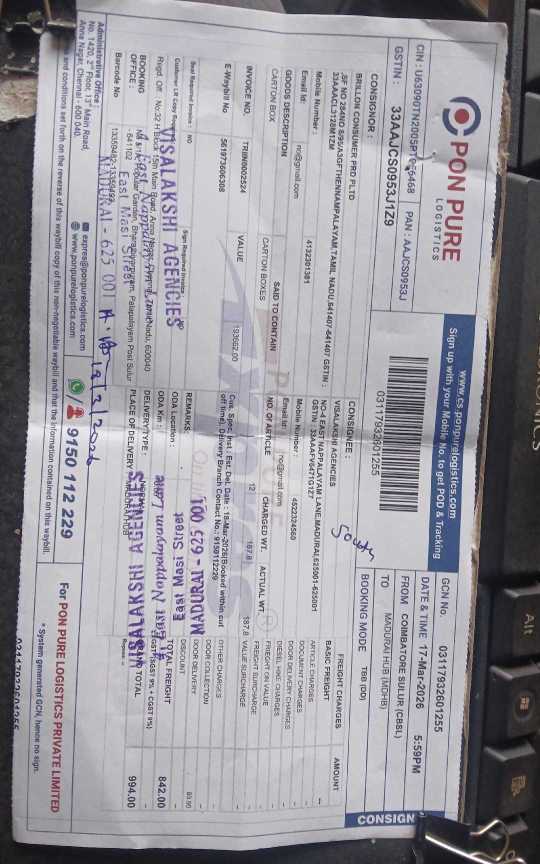 PON PURE
LOGISTICS
www.cs-ponpurelogistics.com
Sign up with your Mobile No. to get POD & Tracking
CIN : PAN : AAJCS0953J
GSTIN : 33AAJCS0953J1Z9
03117932601255
GCN No. 03117932601255
DATE & TIME 17-Mar-2026 5:59PM
FROM COIMBATORE SULUR (CBSL)
TO MADURAI HUB (MDHB)
BOOKING MODE TBB (DD)
CONSIGN
CONSIGNOR :
BRILLON CONSUMER PRD PLTD
TAMIL NADU, 641407-641407 GSTIN :
33AAACL3128M1ZM
Mobile Number : 4132301381
Email Id: no@gmail.com
CONSIGNEE :
VISALAKSHI AGENCIES
NO-4 EAST NAPPALAYAM LANE,MADURAI,625001-625001
GSTIN : 33AAAFV6471G1Z7
Mobile Number : 4522324560
Email Id: no@gmail.com
South
GOODS DESCRIPTION SAID TO CONTAIN NO. OF ARTICLE CHARGED WT. ACTUAL WT
CARTON BOX CARTON BOXES 12 187.8 187.8
INVOICE NO. TRIIN0002524 VALUE 193662.00
E-Waybill No 561973606308
Cus. Spec. Inst.: Est. Del. Date : 19-Mar-2026(Booked within cut
off time), Delivery Branch Contact No.: 9150112229
FREIGHT CHARGES AMOUNT
BASIC FREIGHT
ARTICLE CHARGES
DOCUMENT CHARGES
DOOR DELIVERY CHARGES
DIESEL HIKE CHARGES
FREIGHT ON VALUE
FREIGHT SURCHARGE
VALUE SURCHARGE
OTHER CHARGES
DOOR COLLECTION
DOOR DELIVERY
DISCOUNT
TOTAL FREIGHT 842.00
TOTAL 994.00
REMARKS:
ODA Location :
ODA Km :
DELIVERY TYPE :
PLACE OF DELIVERY
Seal Required Invoice : NO
Sign Required Invoice : NO
Regd. Off.: No:32 H Block 15th Main Road, Anna Nagar, Chennai, Tamil Nadu, 600040
BOOKING
OFFICE :
Barcode No
VISALAKSHI AGENCIES
East Masi Street
MADURAI - 625 001
VISALAKSHI AGENCIES
4, East Nappalayam Lane
East Masi Street
MADURAI - 625 001.
Administrative Office :
No. 1420, 2nd Floor, 13th Main Road,
Anna Nagar, Chennai - 600 040.
expres@ponpurelogistics.com
www.ponpurelogistics.com
9150 112 229
and conditions set forth on the reverse of this waybill copy of this non-negotiable waybill and that the information contained on this waybill.
For PON PURE LOGISTICS PRIVATE LIMITED
* System generated GCN, hence no sign.
03117932601255
Alt